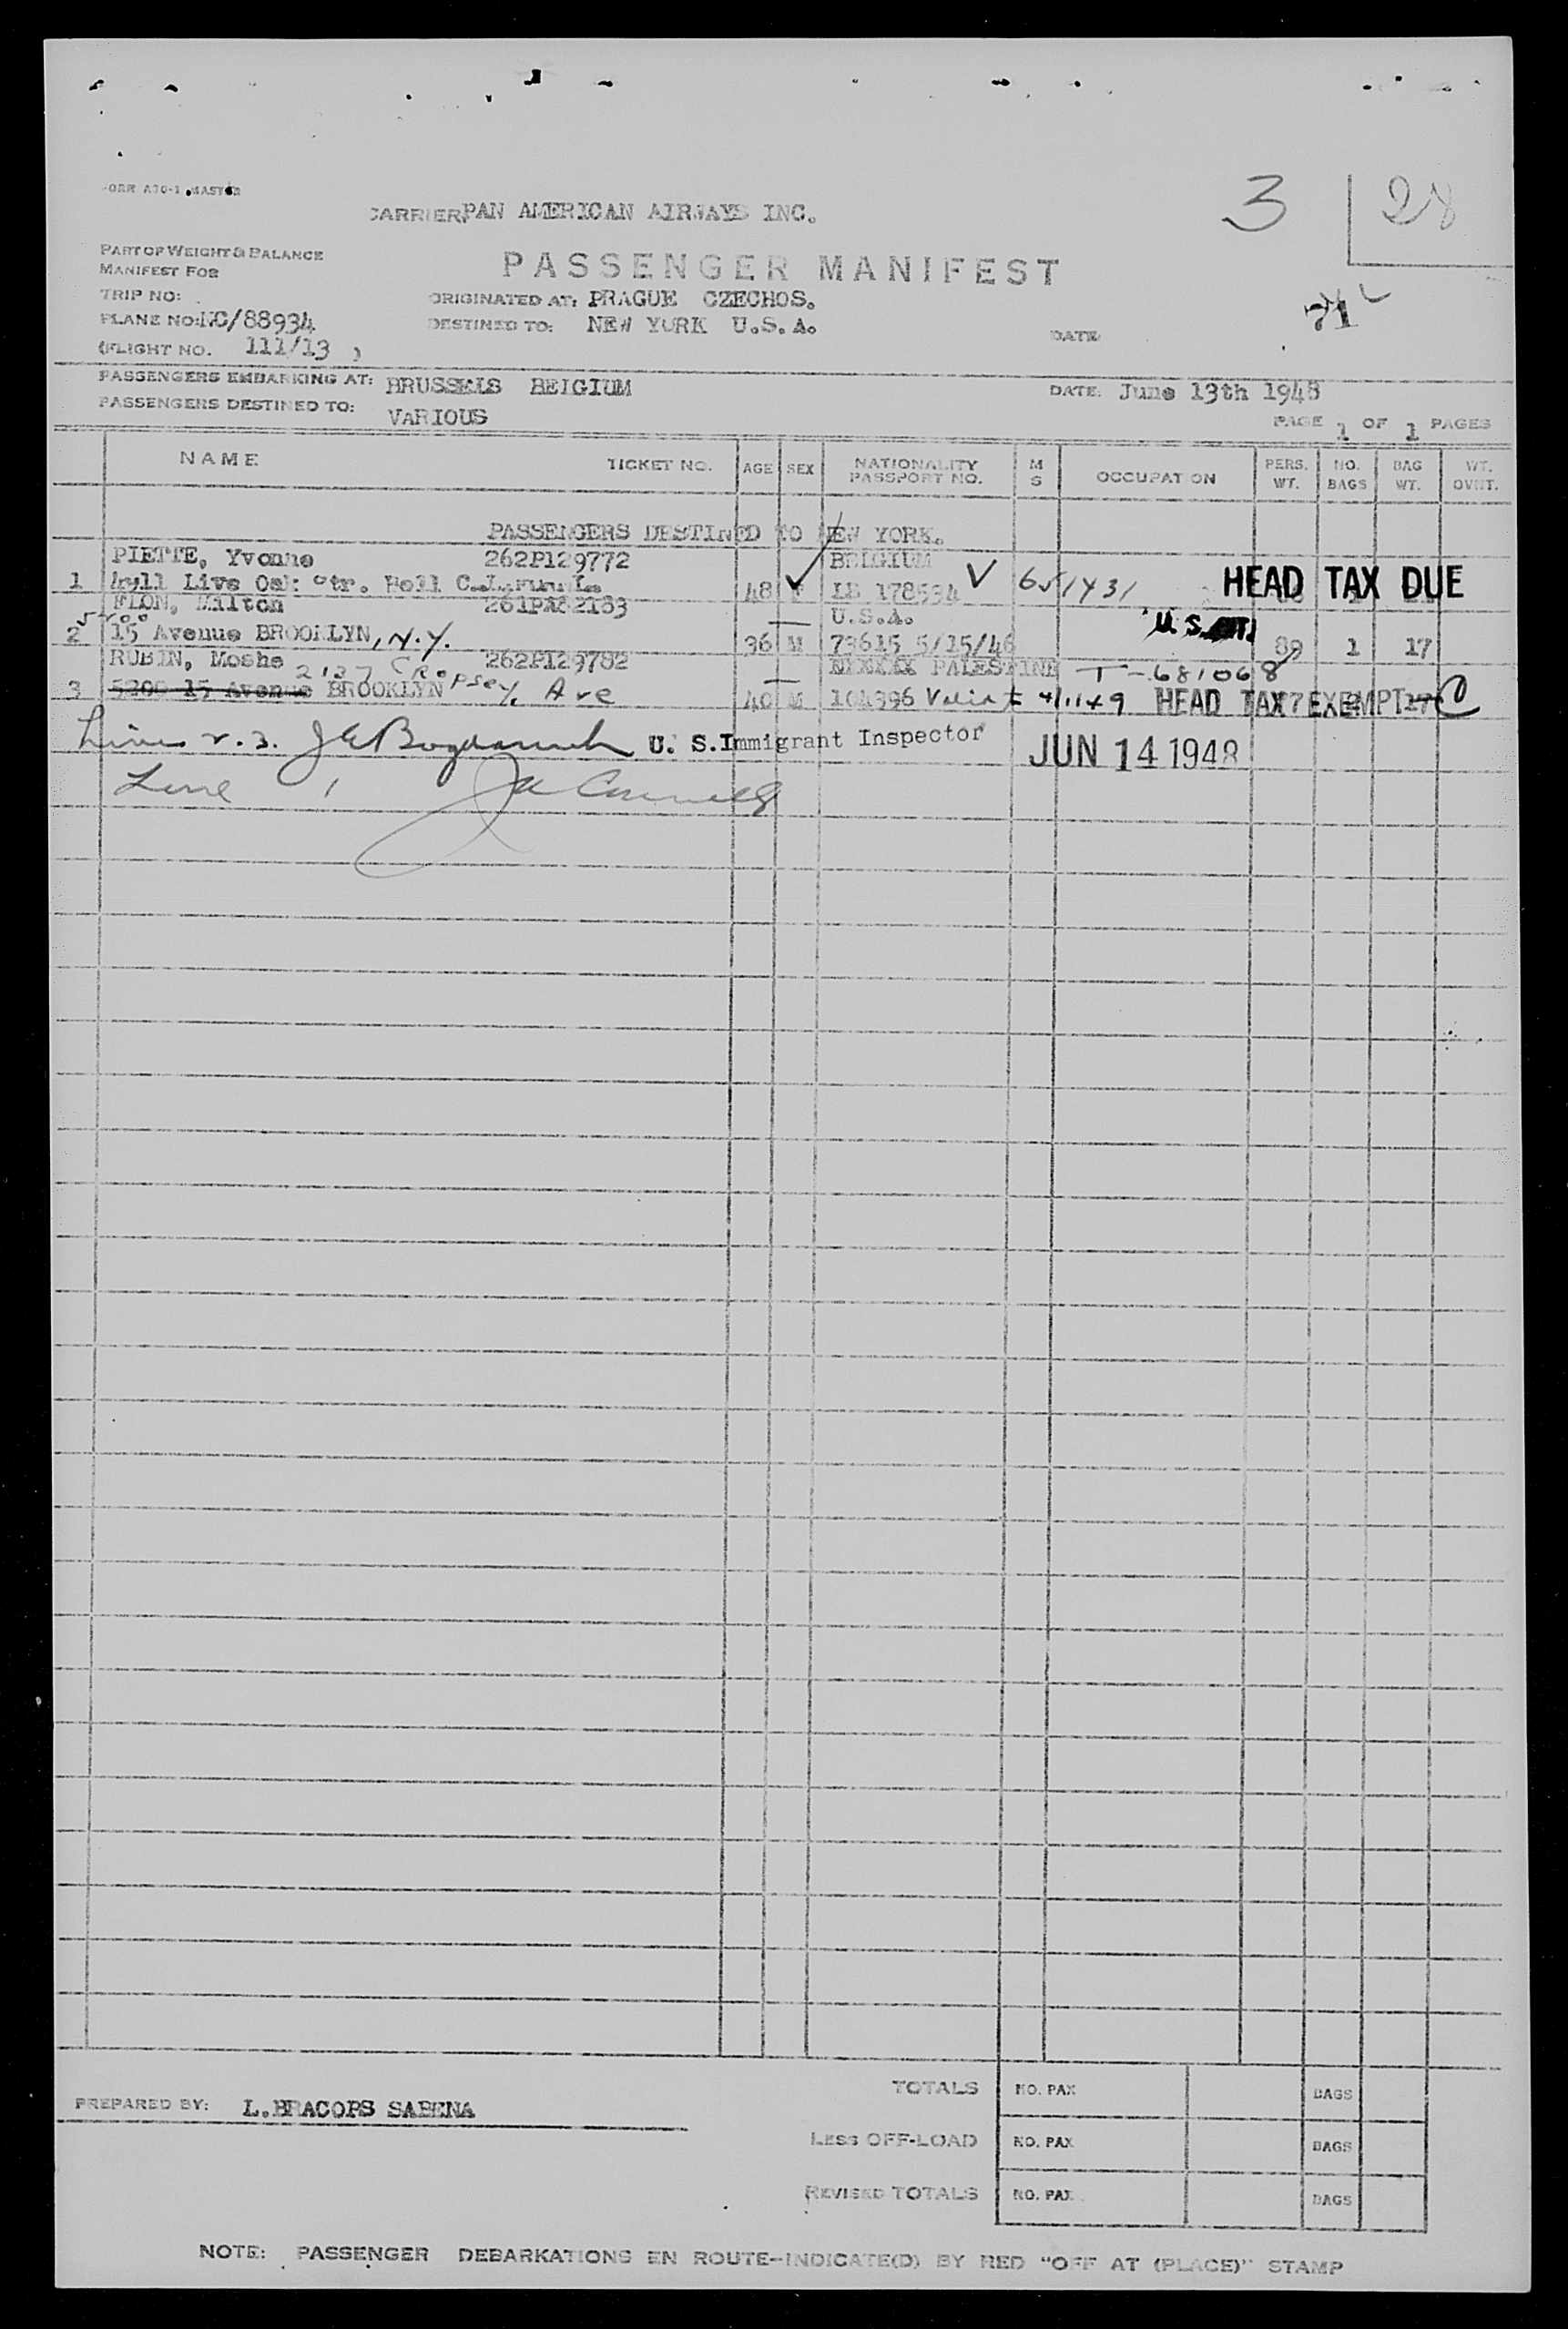 FORM A70-1 MASTER
CARRIER PAN AMERICAN AIRWAYS INC.
3 28
PART OF WEIGHT & BALANCE
MANIFEST FOR
PASSENGER MANIFEST
TRIP NO:
ORIGINATED AT: PRAGUE CZECHOS.
PLANE NO: NC/88934
DESTINED TO: NEW YORK U.S.A.
DATE
71
(FLIGHT NO. 111/13 )
PASSENGERS EMBARKING AT: BRUSSELS BELGIUM
DATE: June 13th 1948
PASSENGERS DESTINED TO: VARIOUS
PAGE 1 OF 1 PAGES
NAME TICKET NO. AGE SEX NATIONALITY PASSPORT NO. M S OCCUPATION PERS. WT. NO. BAGS BAG WT. WT. OVHT.
PASSENGERS DESTINED TO NEW YORK.
PIETTE, Yvonne 262P129772 BELGIUM
1 Live Oak Str. Bell 48 F LB 178534 V 651431 HEAD TAX DUE
FLON, Milton 261PA82183 U.S.A.
5200
2 15 Avenue BROOKLYN, N.Y. 36 M 73615 5/15/46 U.S. 89 1 17
RUBIN, Moshe 262P129782 PALESTINE T-681068
2137 Cropsey Ave
3 5200 15 Avenue BROOKLYN 40 M 104396 Valid to 4/1149 HEAD TAX EXEMPT
Lines 2.3. U. S. Immigrant Inspector JUN 14 1948
Line 1
TOTALS NO. PAX BAGS
PREPARED BY: L.BRACOPS SABENA
LESS OFF-LOAD NO. PAX BAGS
REVISED TOTALS NO. PAX BAGS
NOTE: PASSENGER DEBARKATIONS EN ROUTE-INDICATE(D) BY RED "OFF AT (PLACE)" STAMP